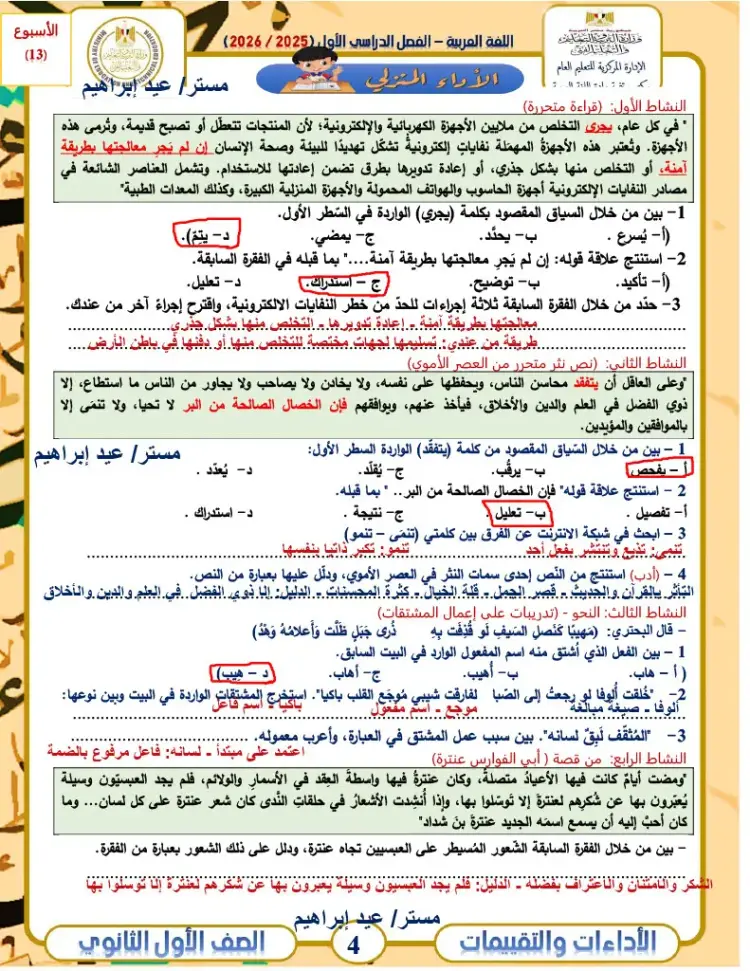 الأسبوع
(13)
اللغة العربية – الفصل الدراسي الأول (2025 / 2026)
الإدارة المركزية للتعليم العام
الأداء المنزلي
مستر/ عيد إبراهيم
النشاط الأول: (قراءة متحررة)
" في كل عام، يجرى التخلص من ملايين الأجهزة الكهربائية والإلكترونية؛ لأن المنتجات تتعطل أو تصبح قديمة، وتُرمى هذه
الأجهزة. وتُعتبر هذه الأجهزة المهملة نفايات إلكترونية تشكل تهديدًا للبيئة وصحة الإنسان إن لم يَجرِ معالجتها بطريقة
آمنة، أو التخلص منها بشكل جذري، أو إعادة تدويرها بطرق تضمن إعادتها للاستخدام. وتشمل العناصر الشائعة في
مصادر النفايات الإلكترونية أجهزة الحاسوب والهواتف المحمولة والأجهزة المنزلية الكبيرة، وكذلك المعدات الطبية"
1– بين من خلال السياق المقصود بكلمة (يجري) الواردة في السَّطر الأول.
(أ– يُسرع . ب– يحدَّد. ج– يمضي. د– يتمُّ).
2– استنتج علاقة قوله: إن لم يَجرِ معالجتها بطريقة آمنة...." بما قبله في الفقرة السابقة.
(أ– تأكيد. ب– توضيح. ج – استدراك. د– تعليل.
3– حدّد من خلال الفقرة السابقة ثلاثة إجراءات للحدّ من خطر النفايات الالكترونية، واقترح إجراءً آخر من عندك.
معالجتها بطريقة آمنة – إعادة تدويرها – التخلص منها بشكل جذري
طريقة من عندي: تسليمها لجهات مختصة للتخلص منها أو دفنها في باطن الأرض
النشاط الثاني: (نص نثر متحرر من العصر الأموي)
"وعلى العاقل أن يتفقد محاسن الناس، ويحفظها على نفسه، ولا يخادن ولا يصاحب ولا يجاور من الناس ما استطاع، إلا
ذوي الفضل في العلم والدين والأخلاق، فيأخذ عنهم، ويوافقهم فإن الخصال الصالحة من البر لا تحيا، ولا تنمَى إلا
بالموافقين والمؤيدين.
1 – بين من خلال السَّياق المقصود من كلمة (يتفقّد) الواردة السطر الأول:
مستر/ عيد إبراهيم
أ – يفحص ب– يرقُب. ج– يُقلّد. د– يُعدّد .
2 – استنتج علاقة قوله" فإن الخصال الصالحة من البر.. " بما قبله.
أ– تفصيل . ب– تعليل . ج– نتيجة . د– استدراك .
3 – ابحث في شبكة الانترنت عن الفرق بين كلمتي (تنمَى – تنمو)
تنمى: تذيع وتنتشر بفعل أحد تنمو: تكبر ذاتيا بنفسها
4 – (أدب) استنتج من النّص إحدى سمات النثر في العصر الأموي، ودلّل عليها بعبارة من النص.
التأثر بالقرآن والحديث – قصر الجمل – قلة الخيال – كثرة المحسنات – الدليل: إلا ذوي الفضل في العلم والدين والأخلاق
النشاط الثالث: النحو – (تدريبات على إعمال المشتقات)
– قال البحتري: (مَهيبًا كَنَصلِ السَيفِ لَو قُذِفَت بِهِ ذُرى جَبَلٍ ظَلَّت وَأَعلامُهُ وَهدُ)
1 – بين الفعل الذي أُشتق منه اسم المفعول الوارد في البيت السابق.
( أ – هاب. ب– أُهيب. ج– أهاب. د – هِيب)
2– . "خُلقت ألوفا لو رجعتُ إلى الصِّبا لفارقت شيبي مُوجَع القلب باكيا". استخرج المشتقات الواردة في البيت وبين نوعها:
ألوفا – صيغة مبالغة موجع – اسم مفعول باكيا – اسم فاعل
3– "المُثقَّف لَبِقٌ لسانه". بين سبب عمل المشتق في العبارة، وأعرب معموله.
اعتمد على مبتدأ – لسانه: فاعل مرفوع بالضمة
النشاط الرابع: من قصة ( أبي الفوارس عنترة)
"ومضت أيامٌ كانت فيها الأعيادُ متصلةً، وكان عنترةُ فيها واسطةَ العِقد في الأسمارِ والولائم، فلم يجد العبسيّون وسيلة
يُعبّرون بها عن شُكرِهم لعنترةَ إلا توسّلوا بها، وإذا أُنشِدت الأشعارُ في حلقاتِ النَّدى كان شعر عنترة على كل لسان... وما
كان أحبَّ إليه أن يسمع اسمَه الجديد عنترةَ بنَ شداد"
– بين من خلال الفقرة السابقة الشّعور المُسيطر على العبسيين تجاه عنترة، ودلل على ذلك الشعور بعبارة من الفقرة.
الشكر والامتنان والاعتراف بفضله – الدليل: فلم يجد العبسيون وسيلة يعبرون بها عن شكرهم لعنترة إلا توسلوا بها
مستر/ عيد إبراهيم
الأداءات والتقييمات
4
الصف الأول الثانوي